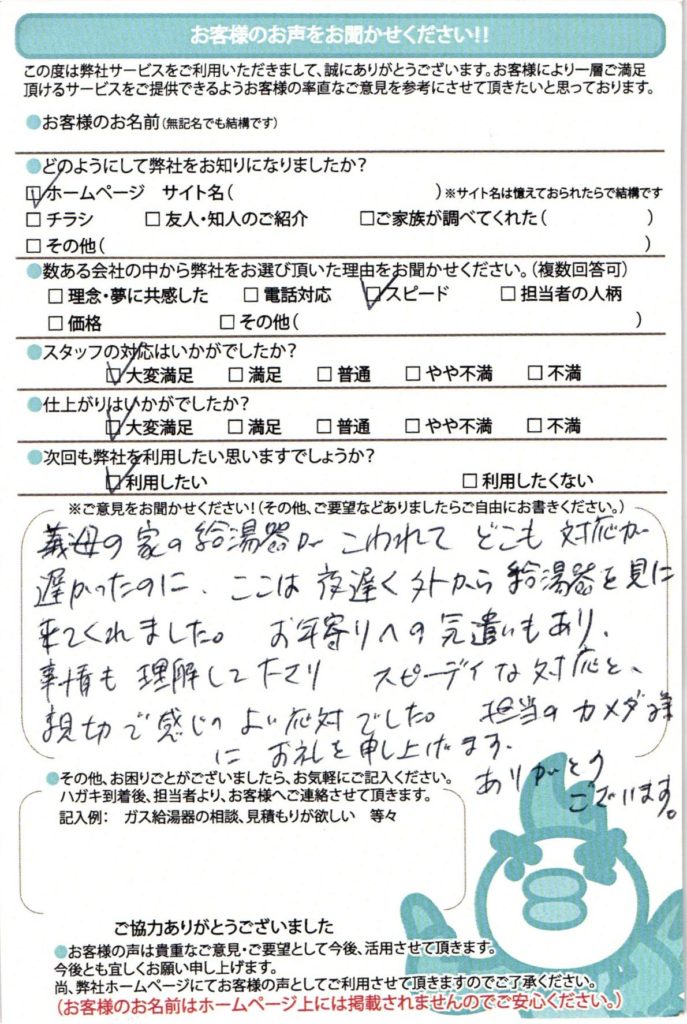 お客様のお声をお聞かせください!!
この度は弊社サービスをご利用いただきまして、誠にありがとうございます。お客様により一層ご満足
頂けるサービスをご提供できるようお客様の率直なご意見を参考にさせて頂きたいと思っております。
●お客様のお名前(無記名でも結構です)
●どのようにして弊社をお知りになりましたか?
☑ホームページ サイト名( )※サイト名は憶えておられたらで結構です
□チラシ □友人・知人のご紹介 □ご家族が調べてくれた( )
□その他( )
●数ある会社の中から弊社をお選び頂いた理由をお聞かせください。(複数回答可)
□理念・夢に共感した □電話対応 ☑スピード □担当者の人柄
□価格 □その他( )
●スタッフの対応はいかがでしたか?
☑大変満足 □満足 □普通 □やや不満 □不満
●仕上がりはいかがでしたか?
☑大変満足 □満足 □普通 □やや不満 □不満
●次回も弊社を利用したい思いますでしょうか?
☑利用したい □利用したくない
※ご意見をお聞かせください!(その他、ご要望などありましたらご自由にお書きください。)
義母の家の給湯器が こわれて どこも 対応が
遅かったのに、ここは 夜遅く外から 給湯器を見に
来てくれました。 お年寄りへの気遣いもあり、
事情も理解して下さり スピーディな対応と、
親切で感じのよい応対でした。 担当のカメダ様
に お礼を申し上げます。
ありがとう
ございます。
●その他、お困りごとがございましたら、お気軽にご記入ください。
ハガキ到着後、担当者より、お客様へご連絡させて頂きます。
記入例: ガス給湯器の相談、見積もりが欲しい 等々
ご協力ありがとうございました
●お客様の声は貴重なご意見・ご要望として今後、活用させて頂きます。
今後とも宜しくお願い申し上げます。
尚、弊社ホームページにてお客様の声としてご利用させて頂きますのでご了承ください。
(お客様のお名前はホームページ上には掲載されませんのでご安心ください。)